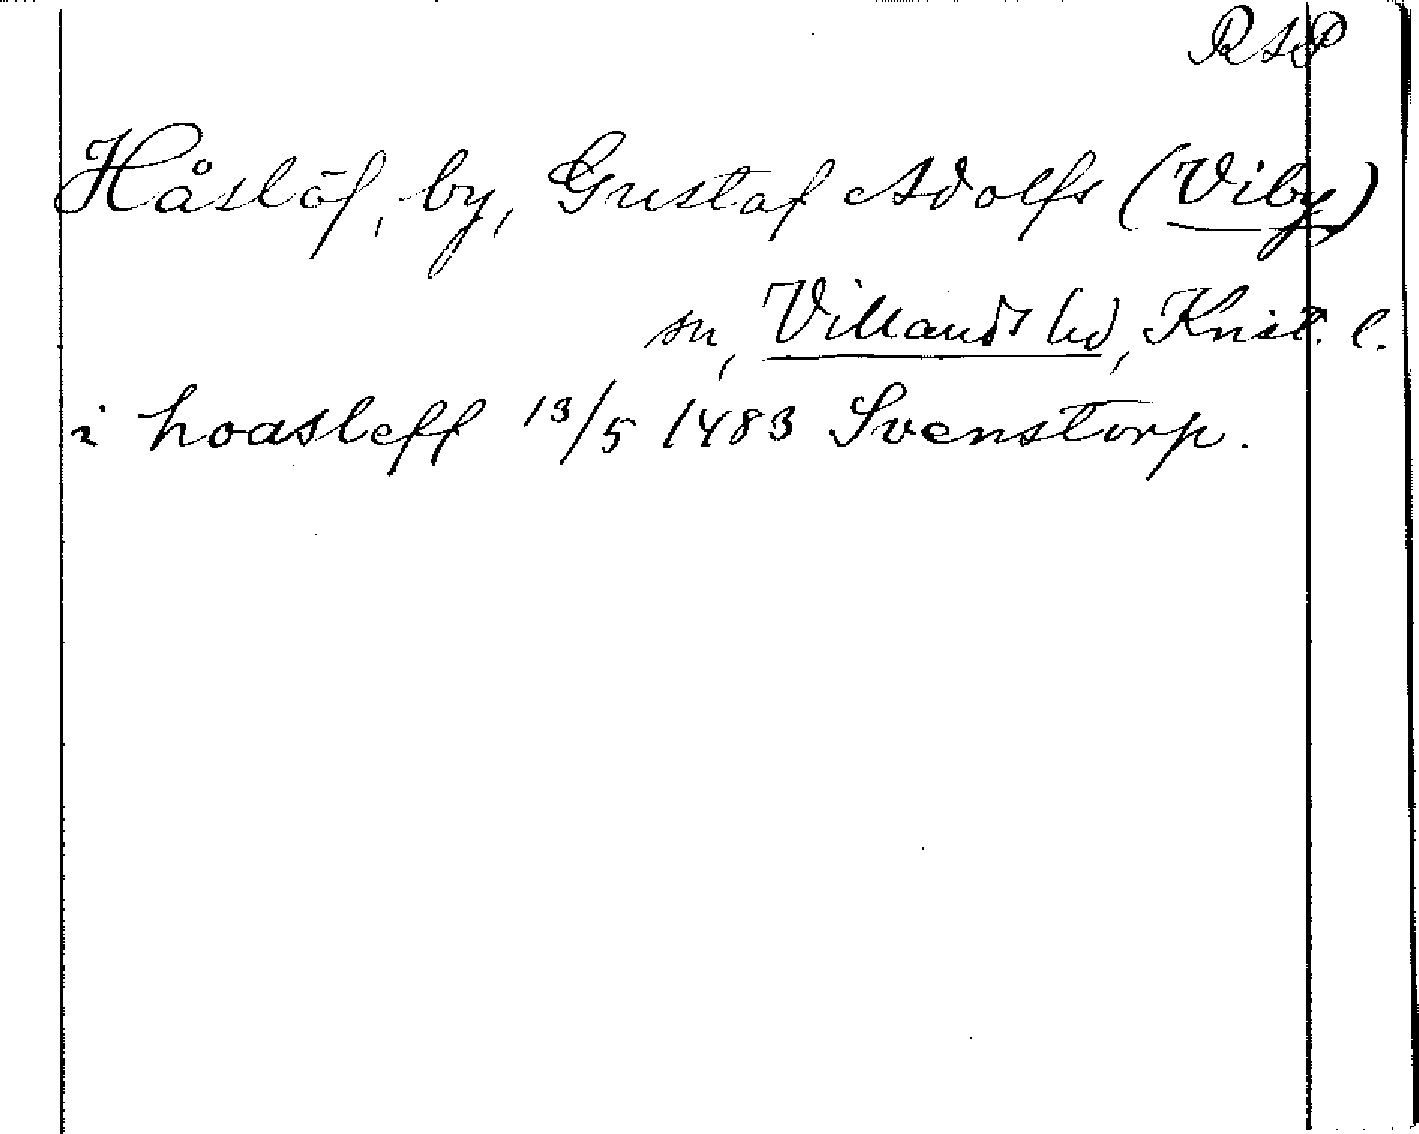 RAP
Håslöf, by, Gustaf Adolfs (Viby)
sn, Villands hd, Krist. l.
i hoasleff 13/5 1483 Svenstorp.